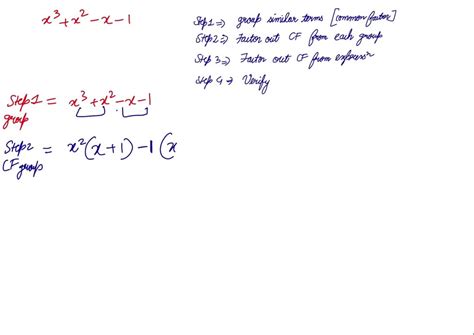 x³ + x² - x - 1
Step1 ⇒ group similar terms [common factor]
Step2 ⇒ Factor out CF from each group
Step 3 ⇒ Factor out CF from expressⁿ
Step 4 → Verify
Step1 = x³ + x² - x - 1
group
Step2 = x²(x + 1) - 1 (x
CF group